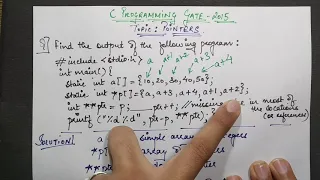 C PROGRAMMING GATE-2015
Topic: POINTERS
Q) Find the output of the following program:
#include <stdio.h> a a+1 a+2 a+3
int main() { a+4
static int a[] = {10, 20, 30, 40, 50};
static int *p[] = {a, a+3, a+4, a+1, a+2};
int **ptr = p; ptr++; // missing in most of
the locations
printf ("%d %d", ptr-p, **ptr); } (or references)
Solution: a simple array integers